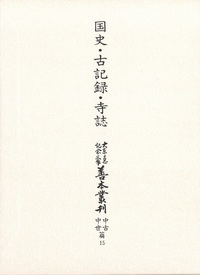 国史・古記録・寺誌
大東急
記念文庫
善本叢刊
中古
中世
篇15